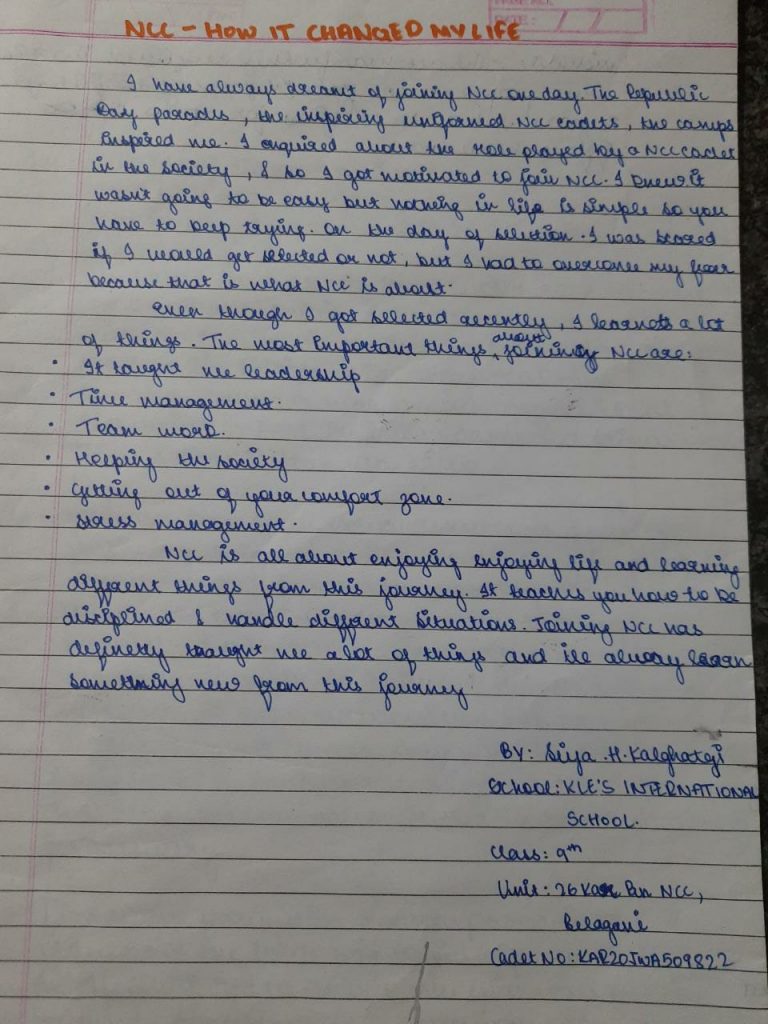 DATE: / /
NCC - HOW IT CHANGED MY LIFE
I have always dreamt of joining NCC one day. The Republic
Day parades, the inspiring uniformed NCC cadets, the camps
inspired me. I enquired about the role played by a NCC cadet
in the society, & so I got motivated to join NCC. I knew it
wasn't going to be easy but nothing in life is simple so you
have to keep trying. On the day of selection. I was scared
if I would get selected or not, but I had to overcome my fear
because that is what NCC is about.
Even though I got selected recently, I learnt a lot
of things. The most important things about joining NCC are:
• It taught me leadership
• Time management.
• Team work.
• Helping the society
• Getting out of your comfort zone.
• Stress management.
NCC is all about enjoying enjoying life and learning
different things from this journey. It teaches you how to be
disciplined & handle different situations. Joining NCC has
definetly taught me a lot of things and ill always learn
something new from this journey
By: Siya .H. Kalghatgi
School: KLE'S INTERNATIONAL
SCHOOL.
Class: 9th
Unit: 26 Kar Bn NCC,
Belagavi
Cadet No: KAR20JWA509822